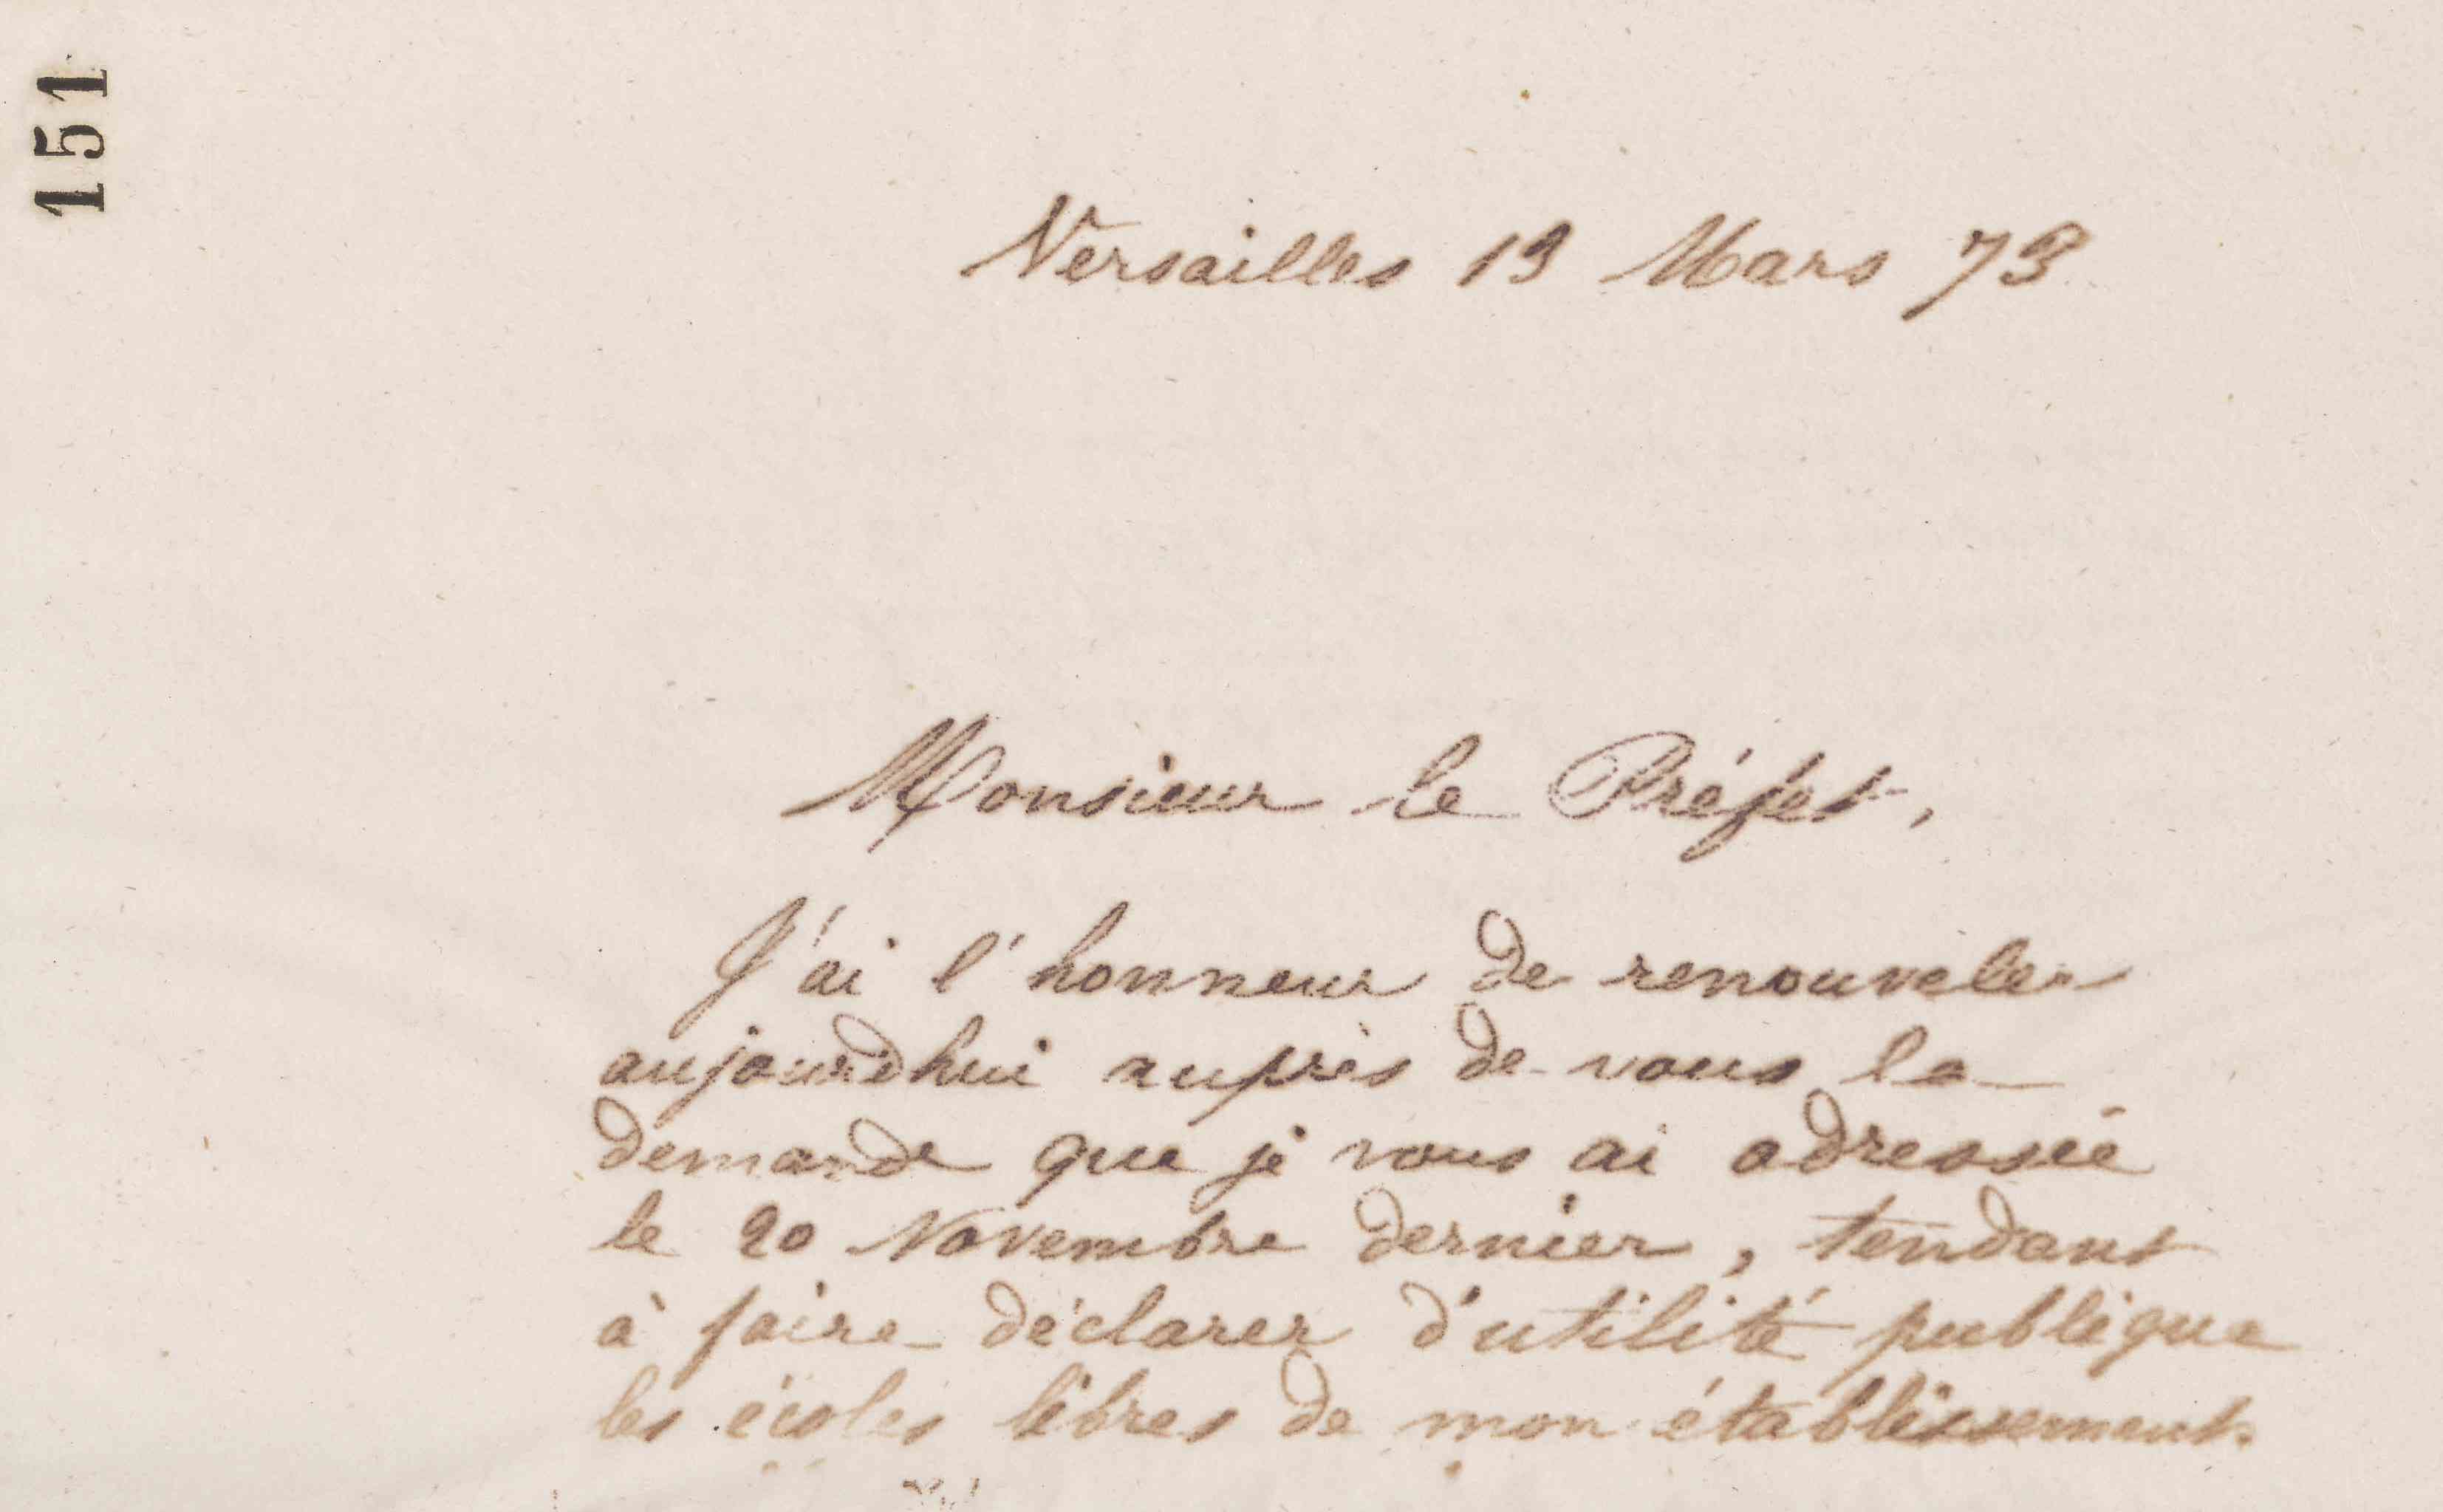 151
Versailles 13 Mars 73
Monsieur le Préfet,
J'ai l'honneur de renouveler
aujourd'hui auprès de vous la
demande que je vous ai adressée
le 20 Novembre dernier, tendant
à faire déclarer d'utilité publique
les écoles libres de mon établissement.